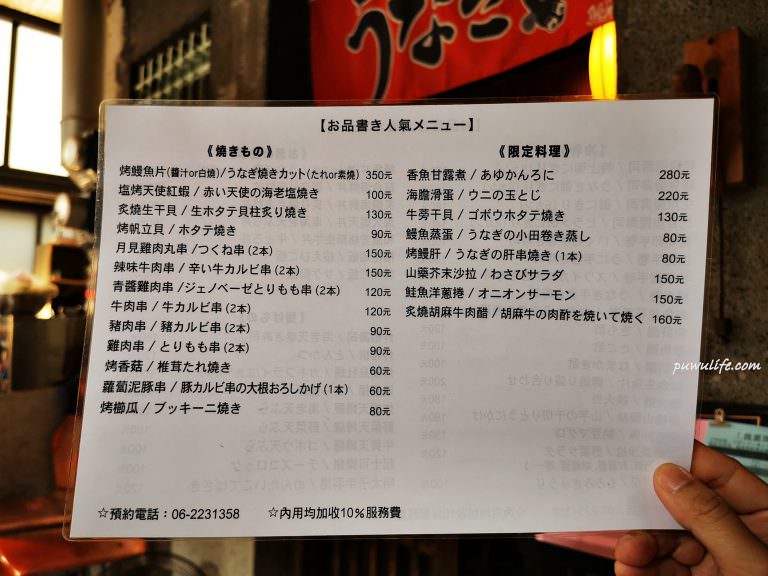 うなぎ
【お品書き人氣メニュー】
《燒きもの》
烤鰻魚片(醬汁or白燒)/うなぎ焼きカット(たれor素燒) 350元
塩烤天使紅蝦 / 赤い天使の海老塩焼き 100元
炙燒生干貝 / 生ホタテ貝柱炙り焼き 130元
烤帆立貝 / ホタテ焼き 90元
月見雞肉丸串 /つくね串(2本) 150元
辣味牛肉串 / 辛い牛カルビ串(2本) 150元
青醬雞肉串 /ジェノベーゼとりもも串(2本) 120元
牛肉串 / 牛カルビ串(2本) 120元
豬肉串 / 豬カルビ串(2本) 90元
雞肉串 / とりもも串(2本) 90元
烤香菇 / 椎茸たれ焼き 60元
蘿蔔泥豚串 / 豚カルビ串の大根おろしかげ(1本) 60元
烤櫛瓜 / ブッキーニ焼き 80元
《限定料理》
香魚甘露煮 / あゆかんろに 280元
海膽滑蛋 / ウニの玉とじ 220元
牛蒡干貝 / ゴボウホタテ焼き 130元
鰻魚蒸蛋 / うなぎの小田巻き蒸し 80元
烤鰻肝 / うなぎの肝串焼き(1本) 80元
山藥芥末沙拉 / わさびサラダ 150元
鮭魚洋蔥捲 / オニオンサーモン 150元
炙燒胡麻牛肉醋 / 胡麻牛の肉酢を焼いて焼く 160元
☆預約電話：06-2231358 ☆內用均加收10%服務費
puwulife.com